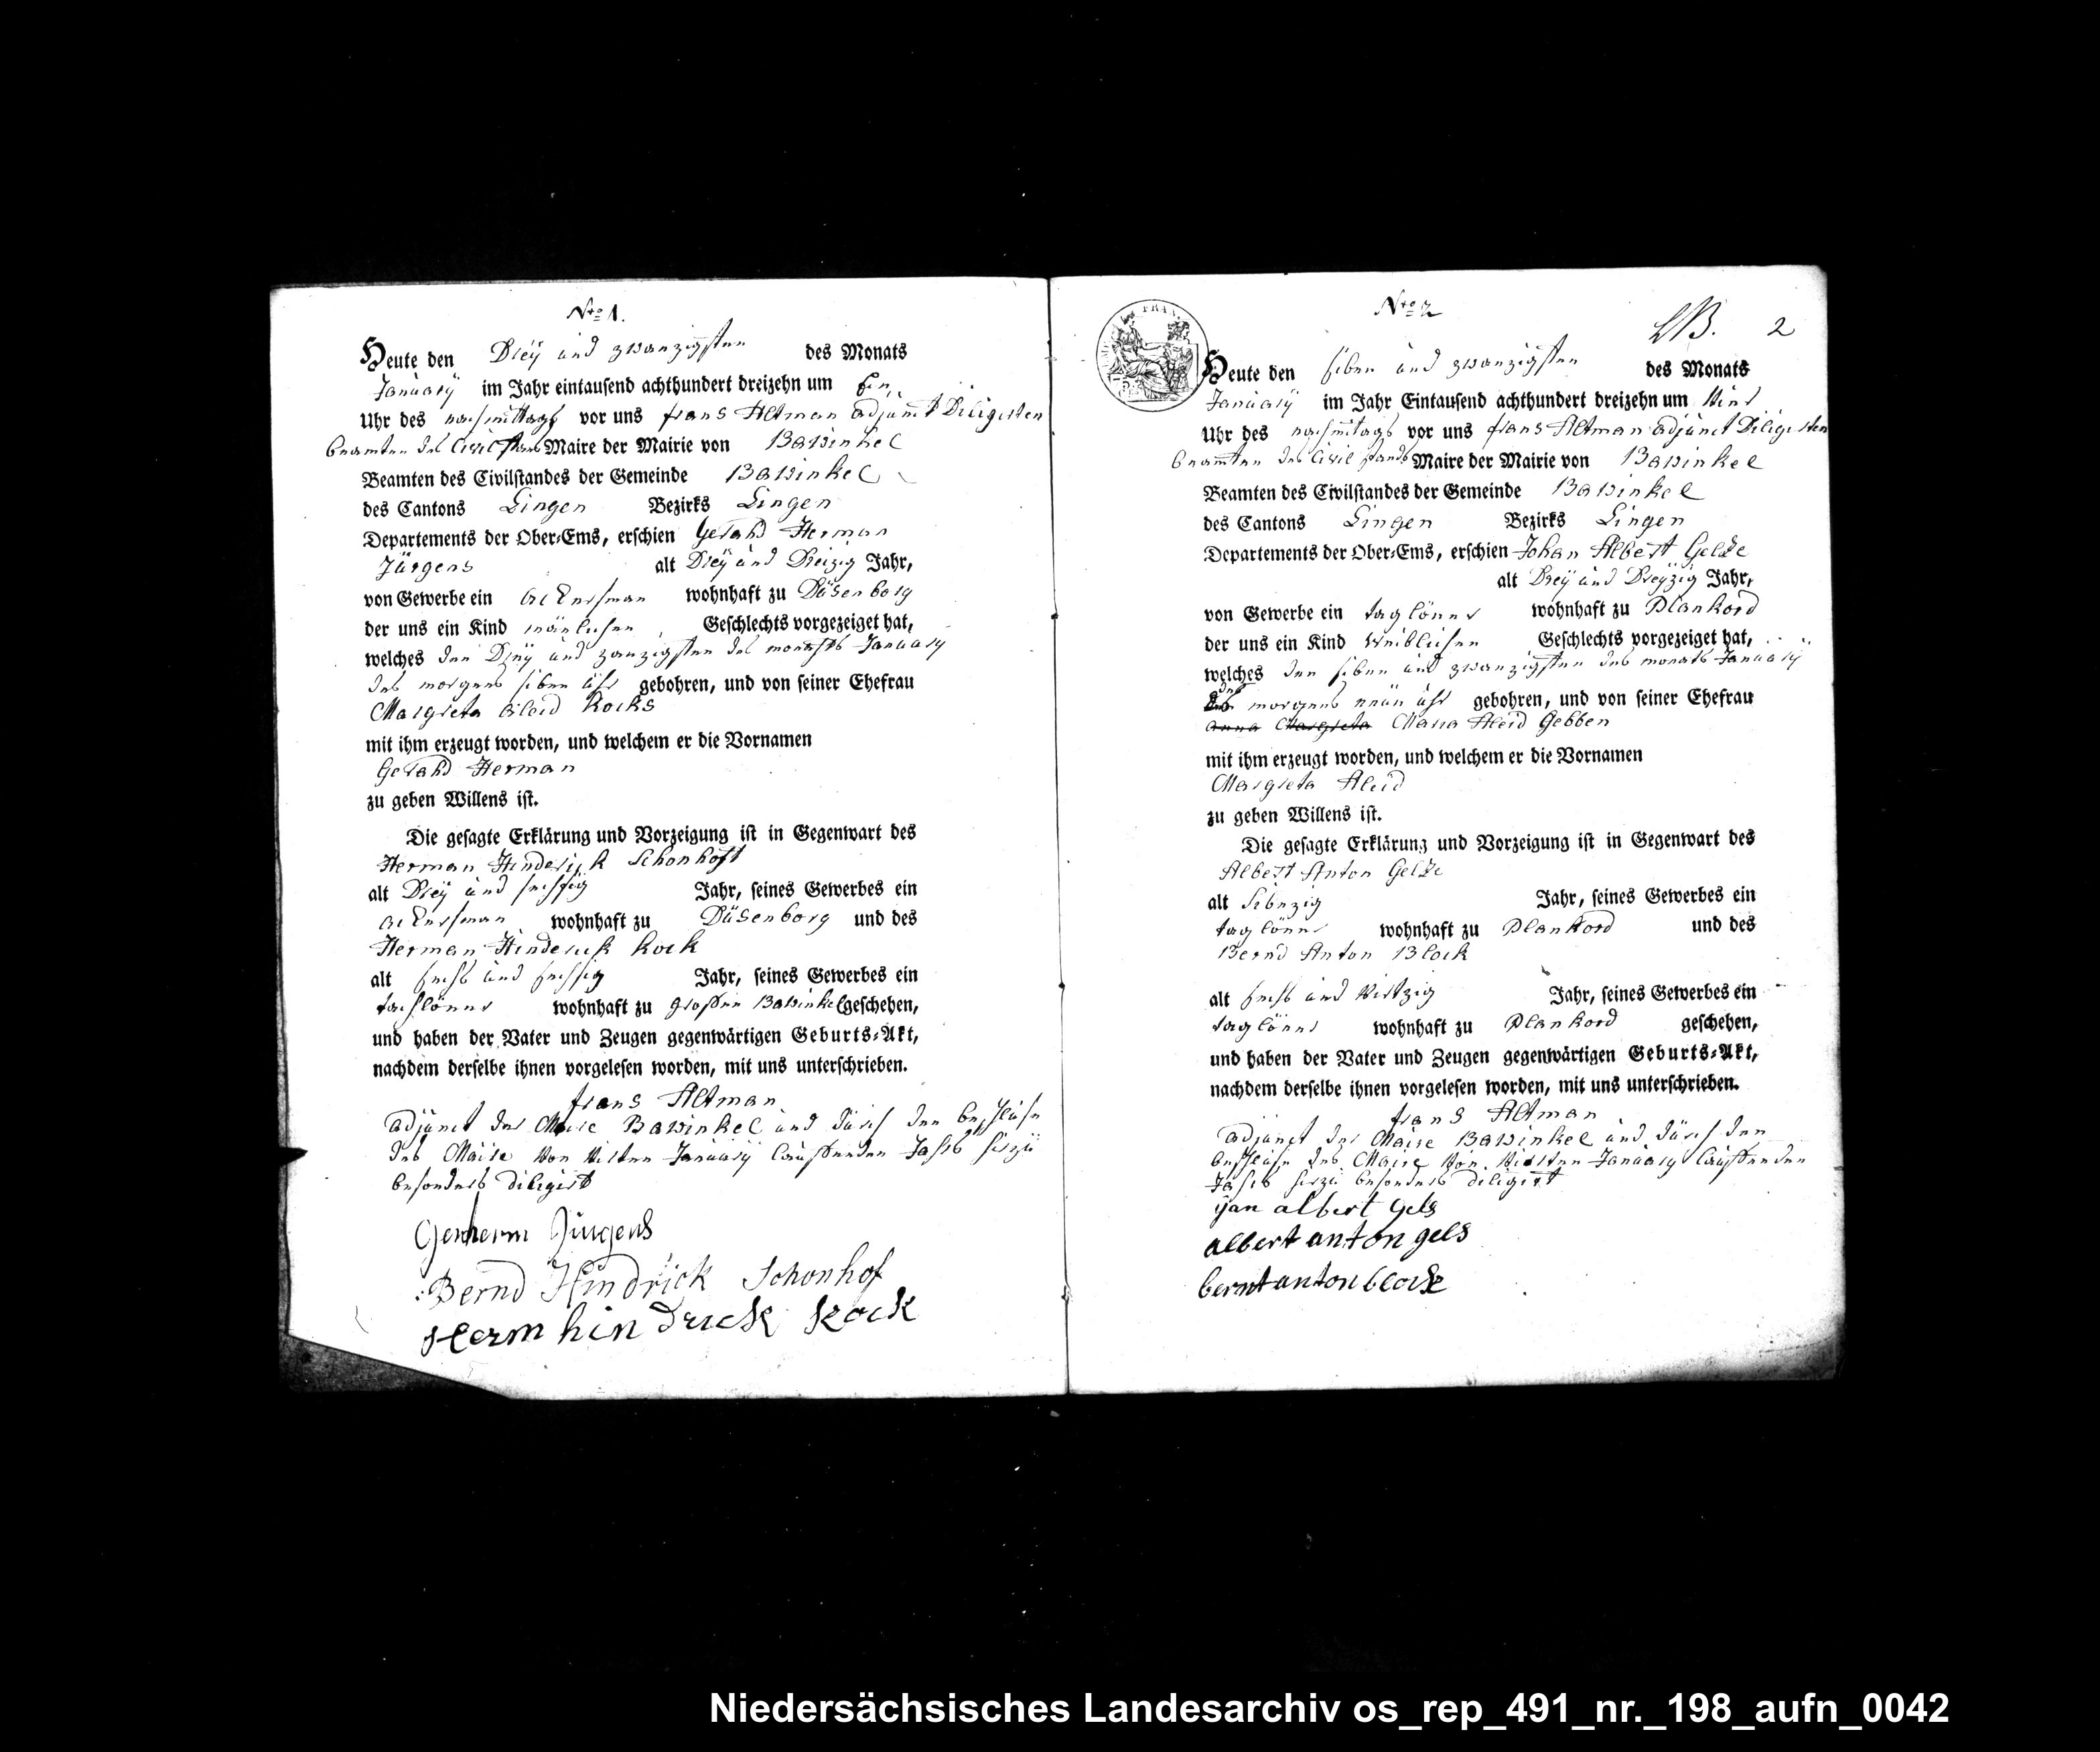 Nro 1.
Heute den Dreÿ und zwanzigsten des Monats
Januarÿ im Jahr eintausend achthundert dreizehn um Ein
Uhr des nachmittags vor uns frans Altman adjunct Diligirten
beamten des Civil stans Maire der Mairie von Bawinkel
Beamten des Civilstandes der Gemeinde Bawinkel
des Cantons Lingen Bezirks Lingen
Departements der Ober-Ems, erschien Gerahd Herman
Jürgens alt Dreÿ und Dreizig Jahr,
von Gewerbe ein ackersman wohnhaft zu Düsenborg
der uns ein Kind mänlichen Geschlechts vorgezeiget hat,
welches den Dreÿ und zwanzigsten des monahts Januarÿ
des morgens siben uhr gebohren, und von seiner Ehefrau
Margreta Aleid Kocks
mit ihm erzeugt worden, und welchem er die Vornamen
Gerahd Herman
zu geben Willens ist.
Die gesagte Erklärung und Vorzeigung ist in Gegenwart des
Herman Hinderick Schonhoft
alt Dreÿ und sechssig Jahr, seines Gewerbes ein
ackersman wohnhaft zu Düsenborg und des
Herman Hinderick Kock
alt sechs und sechssig Jahr, seines Gewerbes ein
tachlönner wohnhaft zu grossen Bawinkel geschehen,
und haben der Vater und Zeugen gegenwärtigen Geburts-Akt,
nachdem derselbe ihnen vorgelesen worden, mit uns unterschrieben.
frans Altman
adjunct der Maire Bawinkel und durch den beschluss
des Maire von virten Januarÿ lauffenden Jahrs hirzu
besonders diligirt
Gerherm Jürgens
Bernd Hindrick Schonhof
Herm hindrick kock
Nro 2
2
Heute den siben und zwanzigsten des Monats
Januarÿ im Jahr Eintausend achthundert dreizehn um Vier
Uhr des nachmitags vor uns frans Altman adjunct Diligirten
beamten des Civil stands Maire der Mairie von Bawinkel
Beamten des Civilstandes der Gemeinde Bawinkel
des Cantons Lingen Bezirks Lingen
Departements der Ober-Ems, erschien Johan Albert Gelze
alt Dreÿ und Dreÿzig Jahr,
von Gewerbe ein taglönner wohnhaft zu Plankord
der uns ein Kind weiblichen Geschlechts vorgezeiget hat,
welches den siben und zwanzigsten des monats Januarÿ
des morgens neun uhr gebohren, und von seiner Ehefrau
Anna Margreta Maria Aleid Gebben
mit ihm erzeugt worden, und welchem er die Vornamen
Margreta Aleid
zu geben Willens ist.
Die gesagte Erklärung und Vorzeigung ist in Gegenwart des
Albert Anton Gelze
alt Sibnzig Jahr, seines Gewerbes ein
taglönner wohnhaft zu Plankord und des
Bernd Anton Block
alt sechs und Virtzig Jahr, seines Gewerbes ein
taglönner wohnhaft zu Plankord geschehen,
und haben der Vater und Zeugen gegenwärtigen Geburts-Akt,
nachdem derselbe ihnen vorgelesen worden, mit uns unterschrieben.
frans Altman
adjunct der Maire Bawinkel und durch den
beschluss des Maire von virten Januarÿ lauffenden
Jahrs hirzu besonders diligirt
ijan albert Gels
albert anton gels
bernt anton block
Niedersächsisches Landesarchiv os_rep_491_nr._198_aufn_0042